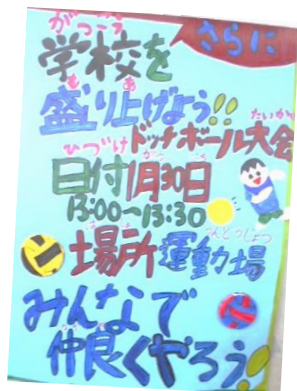 さらに
がっこう
学校を
も あ
盛り上げよう!!
たいかい
ドッチボール大会
ひづけ がつ
日付1月30日
13:00〜13:30
ばしょ うんどうじょう
場所 運動場
みんなで
仲良くやろう!